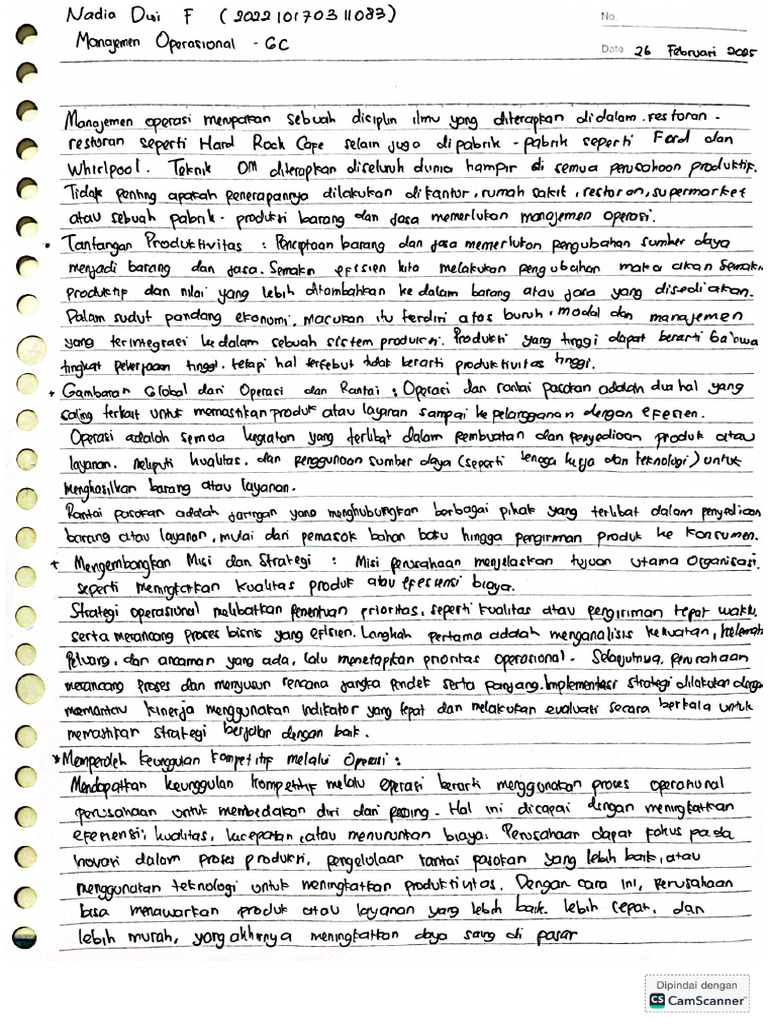 Nadia Dwi F (202210170311083)
No.
Manajemen Operasional - 6C
Date 26 Februari 2025
Manajemen operasi merupakan sebuah disiplin ilmu yang diterapkan didalam restoran -
restoran seperti Hard Rock Cafe selain juga di pabrik - pabrik seperti Ford dan
Whirlpool. Teknik OM diterapkan diseluruh dunia hampir di semua perusahaan produktif.
Tidak penting apakah penerapannya dilakukan di kantor, rumah sakit, restoran, supermarket
atau sebuah pabrik - produksi barang dan jasa memerlukan manajemen operasi.
• Tantangan Produktivitas : Penciptaan barang dan jasa memerlukan pengubahan sumber daya
menjadi barang dan jasa. Semakin efisien kita melakukan pengubahan maka akan semakin
produktif dan nilai yang lebih ditambahkan ke dalam barang atau jasa yang disediakan.
Dalam sudut pandang ekonomi, masukan itu terdiri atas buruh, modal dan manajemen
yang terintegrasi kedalam sebuah sistem produksi. Produksi yang tinggi dapat berarti bahwa
tingkat pekerjaan tinggi, tetapi hal tersebut tidak berarti produktivitas tinggi.
+ Gambaran Global dari Operasi dan Rantai : Operasi dan rantai pasokan adalah dua hal yang
saling terkait untuk memastikan produk atau layanan sampai ke pelangganan dengan efesien.
Operasi adalah semua kegiatan yang terlibat dalam pembuatan dan penyediaan produk atau
layanan. Meliputi kualitas, dan penggunaan sumber daya (seperti tenaga kerja dan teknologi) untuk
menghasilkan barang atau layanan.
Rantai pasokan adalah jaringan yang menghubungkan berbagai pihak yang terlibat dalam penyediaan
barang atau layanan, mulai dari pemasok bahan baku hingga pengiriman produk ke konsumen.
+ Mengembangkan Misi dan Strategi : Misi perusahaan menjelaskan tujuan utama organisasi.
seperti meningkatkan kualitas produk atau efesiensi biaya.
Strategi operasional melibatkan penentuan prioritas, seperti kualitas atau pengiriman tepat waktu,
serta merancang proses bisnis yang efisien. Langkah pertama adalah menganalisis kekuatan, kelemah
peluang, dan ancaman yang ada, lalu menetapkan prioritas operasional. Selanjutnya, perusahaan
merancang proses dan menyusun rencana jangka pendek serta panjang. Implementasi strategi dilakukan dengan
memantau kinerja menggunakan indikator yang tepat dan melakukan evaluasi secara berkala untuk
memastikan strategi berjalan dengan baik.
* Memperoleh keunggulan kompetitif melalui Operasi :
Mendapatkan keunggulan kompetitif melalui operasi berarti menggunakan proses operasional
perusahaan untuk membedakan diri dari pesaing. Hal ini dicapai dengan meningkatkan
efesiensi, kualitas, kecepatan, atau menurunkan biaya. Perusahaan dapat fokus pada
inovasi dalam proses produksi, pengelolaan rantai pasokan yang lebih baik, atau
menggunakan teknologi untuk meningkatkan produktivitas. Dengan cara ini, perusahaan
bisa menawarkan produk atau layanan yang lebih baik, lebih cepat, dan
lebih murah, yang akhirnya meningkatkan daya saing di pasar
Dipindai dengan
CS CamScanner